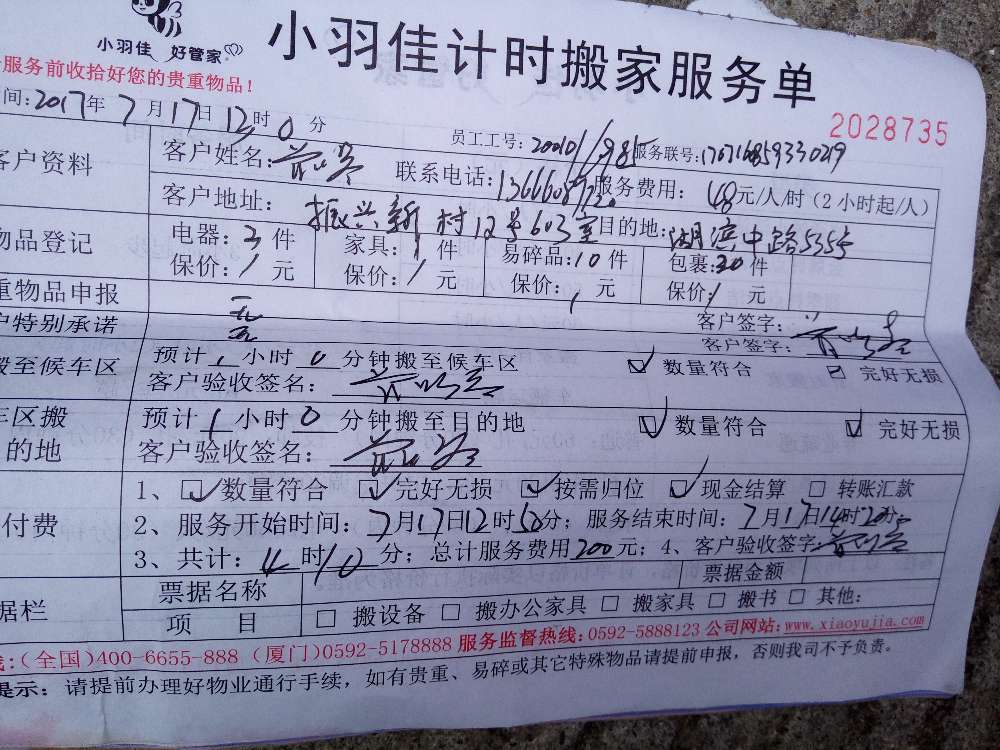 小羽佳 好管家
小羽佳计时搬家服务单
服务前收拾好您的贵重物品！
2028735
间:2017年7月17日12时0分
员工工号: 服务联号:
客户资料 客户姓名: 联系电话: 服务费用: 48元/人/时（2小时起/人）
客户地址: 振兴新村12号603室 目的地: 湖滨中路535号
物品登记 电器:3件 家具:1件 易碎品:10件 包裹:20件
保价:/元 保价:/元 保价:/元 保价:/元
重物品申报 无 客户签字:
户特别承诺 无 客户签字:
搬至候车区 预计1小时0分钟搬至候车区 ☑数量符合 ☑完好无损
客户验收签名:
车区搬 预计1小时0分钟搬至目的地 ☑数量符合 ☑完好无损
的地 客户验收签名:
1、☑数量符合 ☑完好无损 ☑按需归位 ☑现金结算 □转账汇款
付费 2、服务开始时间:7月17日12时50分；服务结束时间:7月17日14时20分；
3、共计:4时10分；总计服务费用200元；4、客户验收签字:
据栏 票据名称 票据金额
项 目 □搬设备 □搬办公家具 □搬家具 □搬书 □其他:
线:(全国)400-6655-888 (厦门)0592-5178888 服务监督热线:0592-5888123 公司网站:www.xiaoyujia.com
提示: 请提前办理好物业通行手续，如有贵重、易碎或其它特殊物品请提前申报，否则我司不予负责。